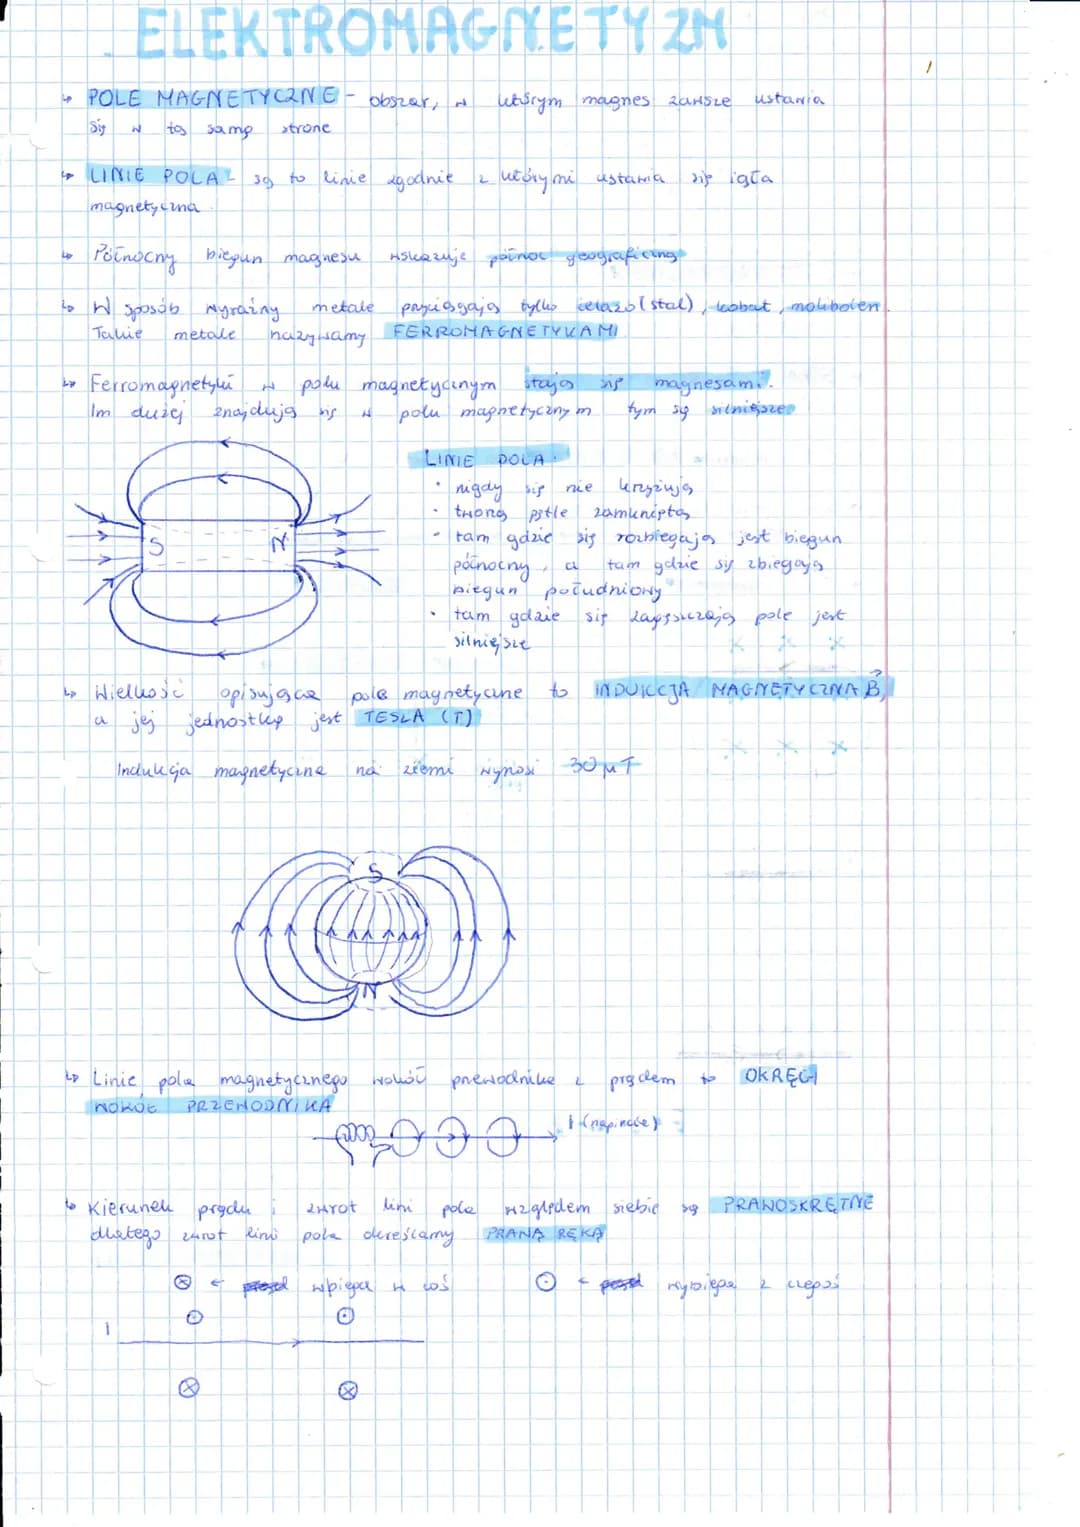 ELEKTROMAGNETYZM
↳ POLE MAGNETYCZNE - obszar, w którym magnes zawsze ustawia
się w tą samą stronę
↳ LINIE POLA - są to linie zgodnie z którymi ustawia się igła
magnetyczna
↳ Północny biegun magnesu wskazuje północ geograficzną
↳ W sposób wyraźny metale przyciągają tylko żelazo (stal), kobalt, molibden.
Takie metale nazywamy FERROMAGNETYKAMI
↳ Ferromagnetyki w polu magnetycznym stają się magnesami.
Im dużej znajdują się w polu magnetycznym tym są silniejsze
LINIE POLA
• nigdy się nie krzyżują
• tworzą pętle zamknięte
S N
• tam gdzie się rozbiegają jest biegun
północny, a tam gdzie się zbiegają
biegun południowy
• tam gdzie się zagęszczają pole jest
silniejsze
↳ Wielkość opisująca pole magnetyczne to INDUKCJA MAGNETYCZNA B,
a jej jednostką jest TESLA (T)
Indukcja magnetyczna na ziemi wynosi 30 μT
S
N
↳ Linie pola magnetycznego wokół przewodnika z prądem to OKRĘGI
WOKÓŁ PRZEWODNIKA
I (napięcie)
↳ Kierunek prądu i zwrot lini pola względem siebie są PRAWOSKRĘTNE
dlatego zwrot linii pola określamy PRAWĄ RĘKĄ
⊗ ← wbiega w coś ⊙ ← wybiega z czegoś
⊙ ⊙
I
⊗ ⊗